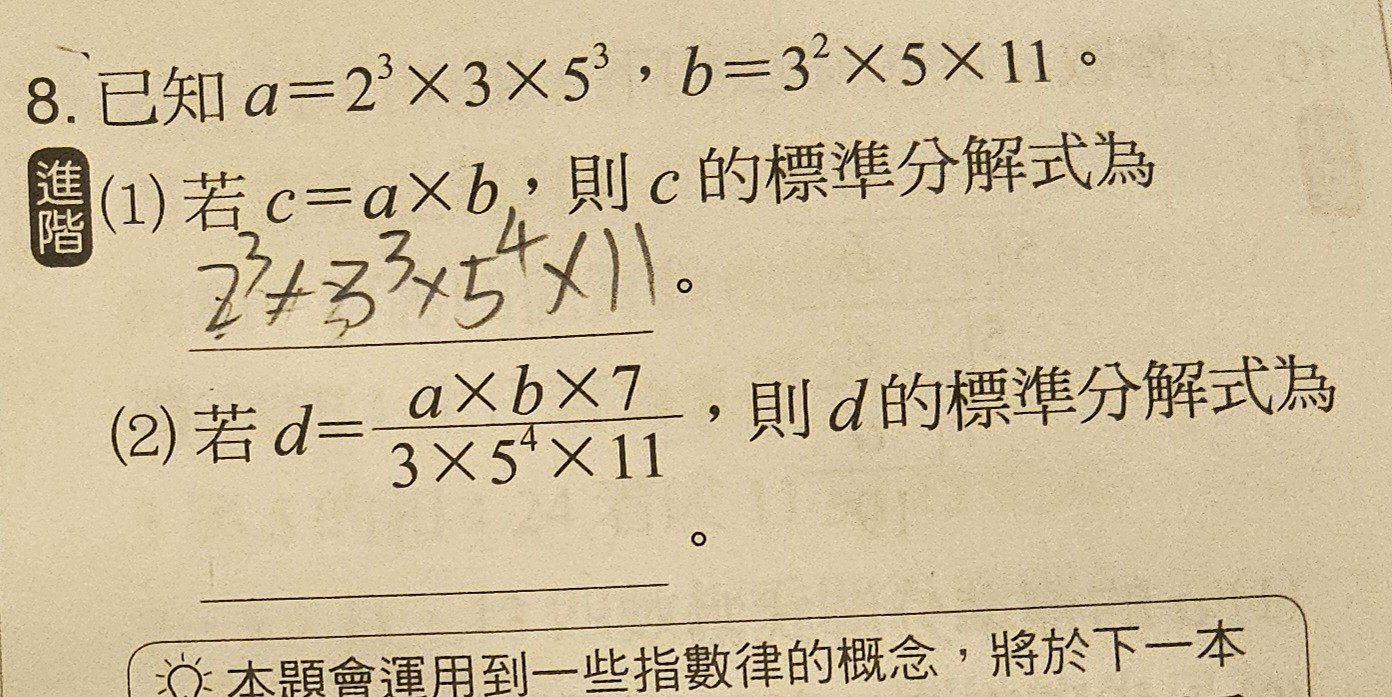 8. 已知 a=2³×3×5³，b=3²×5×11。
進階 (1) 若 c=a×b，則 c 的標準分解式為
2³×3³×5⁴×11。
(2) 若 d=\frac{a×b×7}{3×5⁴×11}，則 d 的標準分解式為
。
本題會運用到一些指數律的概念，將於下一本